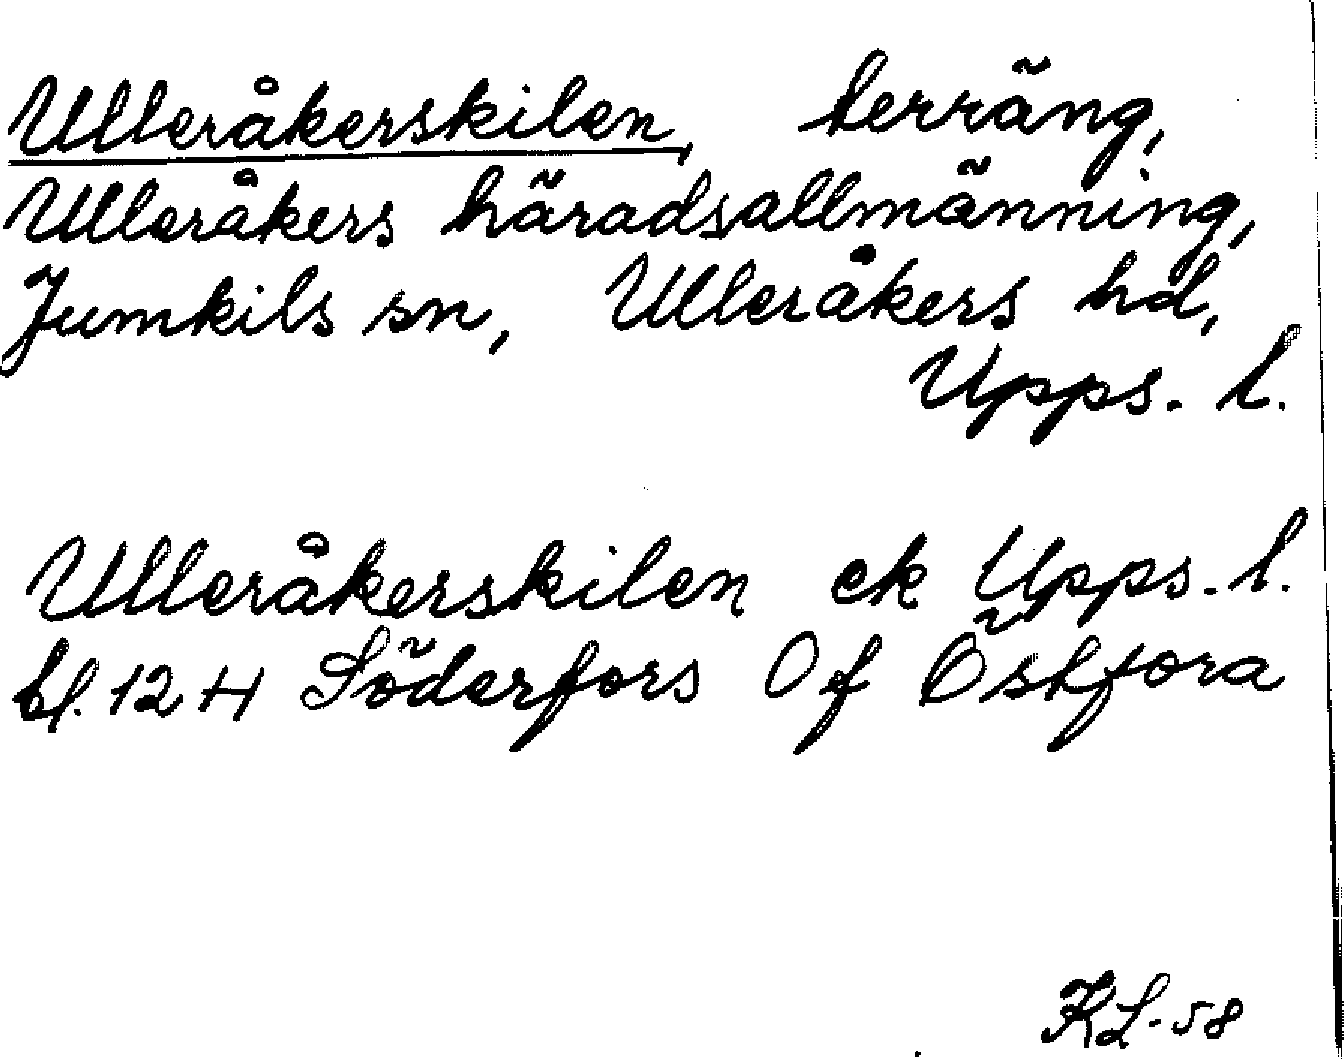 Ulleråkerskilen, terräng,
Ulleråkers häradsallmänning,
Jumkils sn, Ulleråkers hd,
Upps. l.
Ulleråkerskilen ek Upps. l.
bl. 12 H Söderfors Of Östfora
KL-58